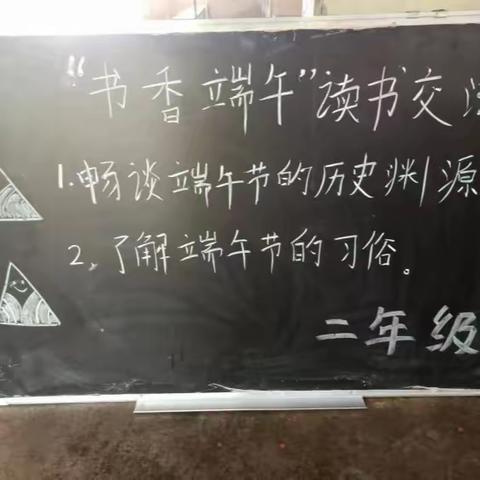 “书香端午”读书交
1.畅谈端午节的历史渊源
2.了解端午节的习俗。
二年级